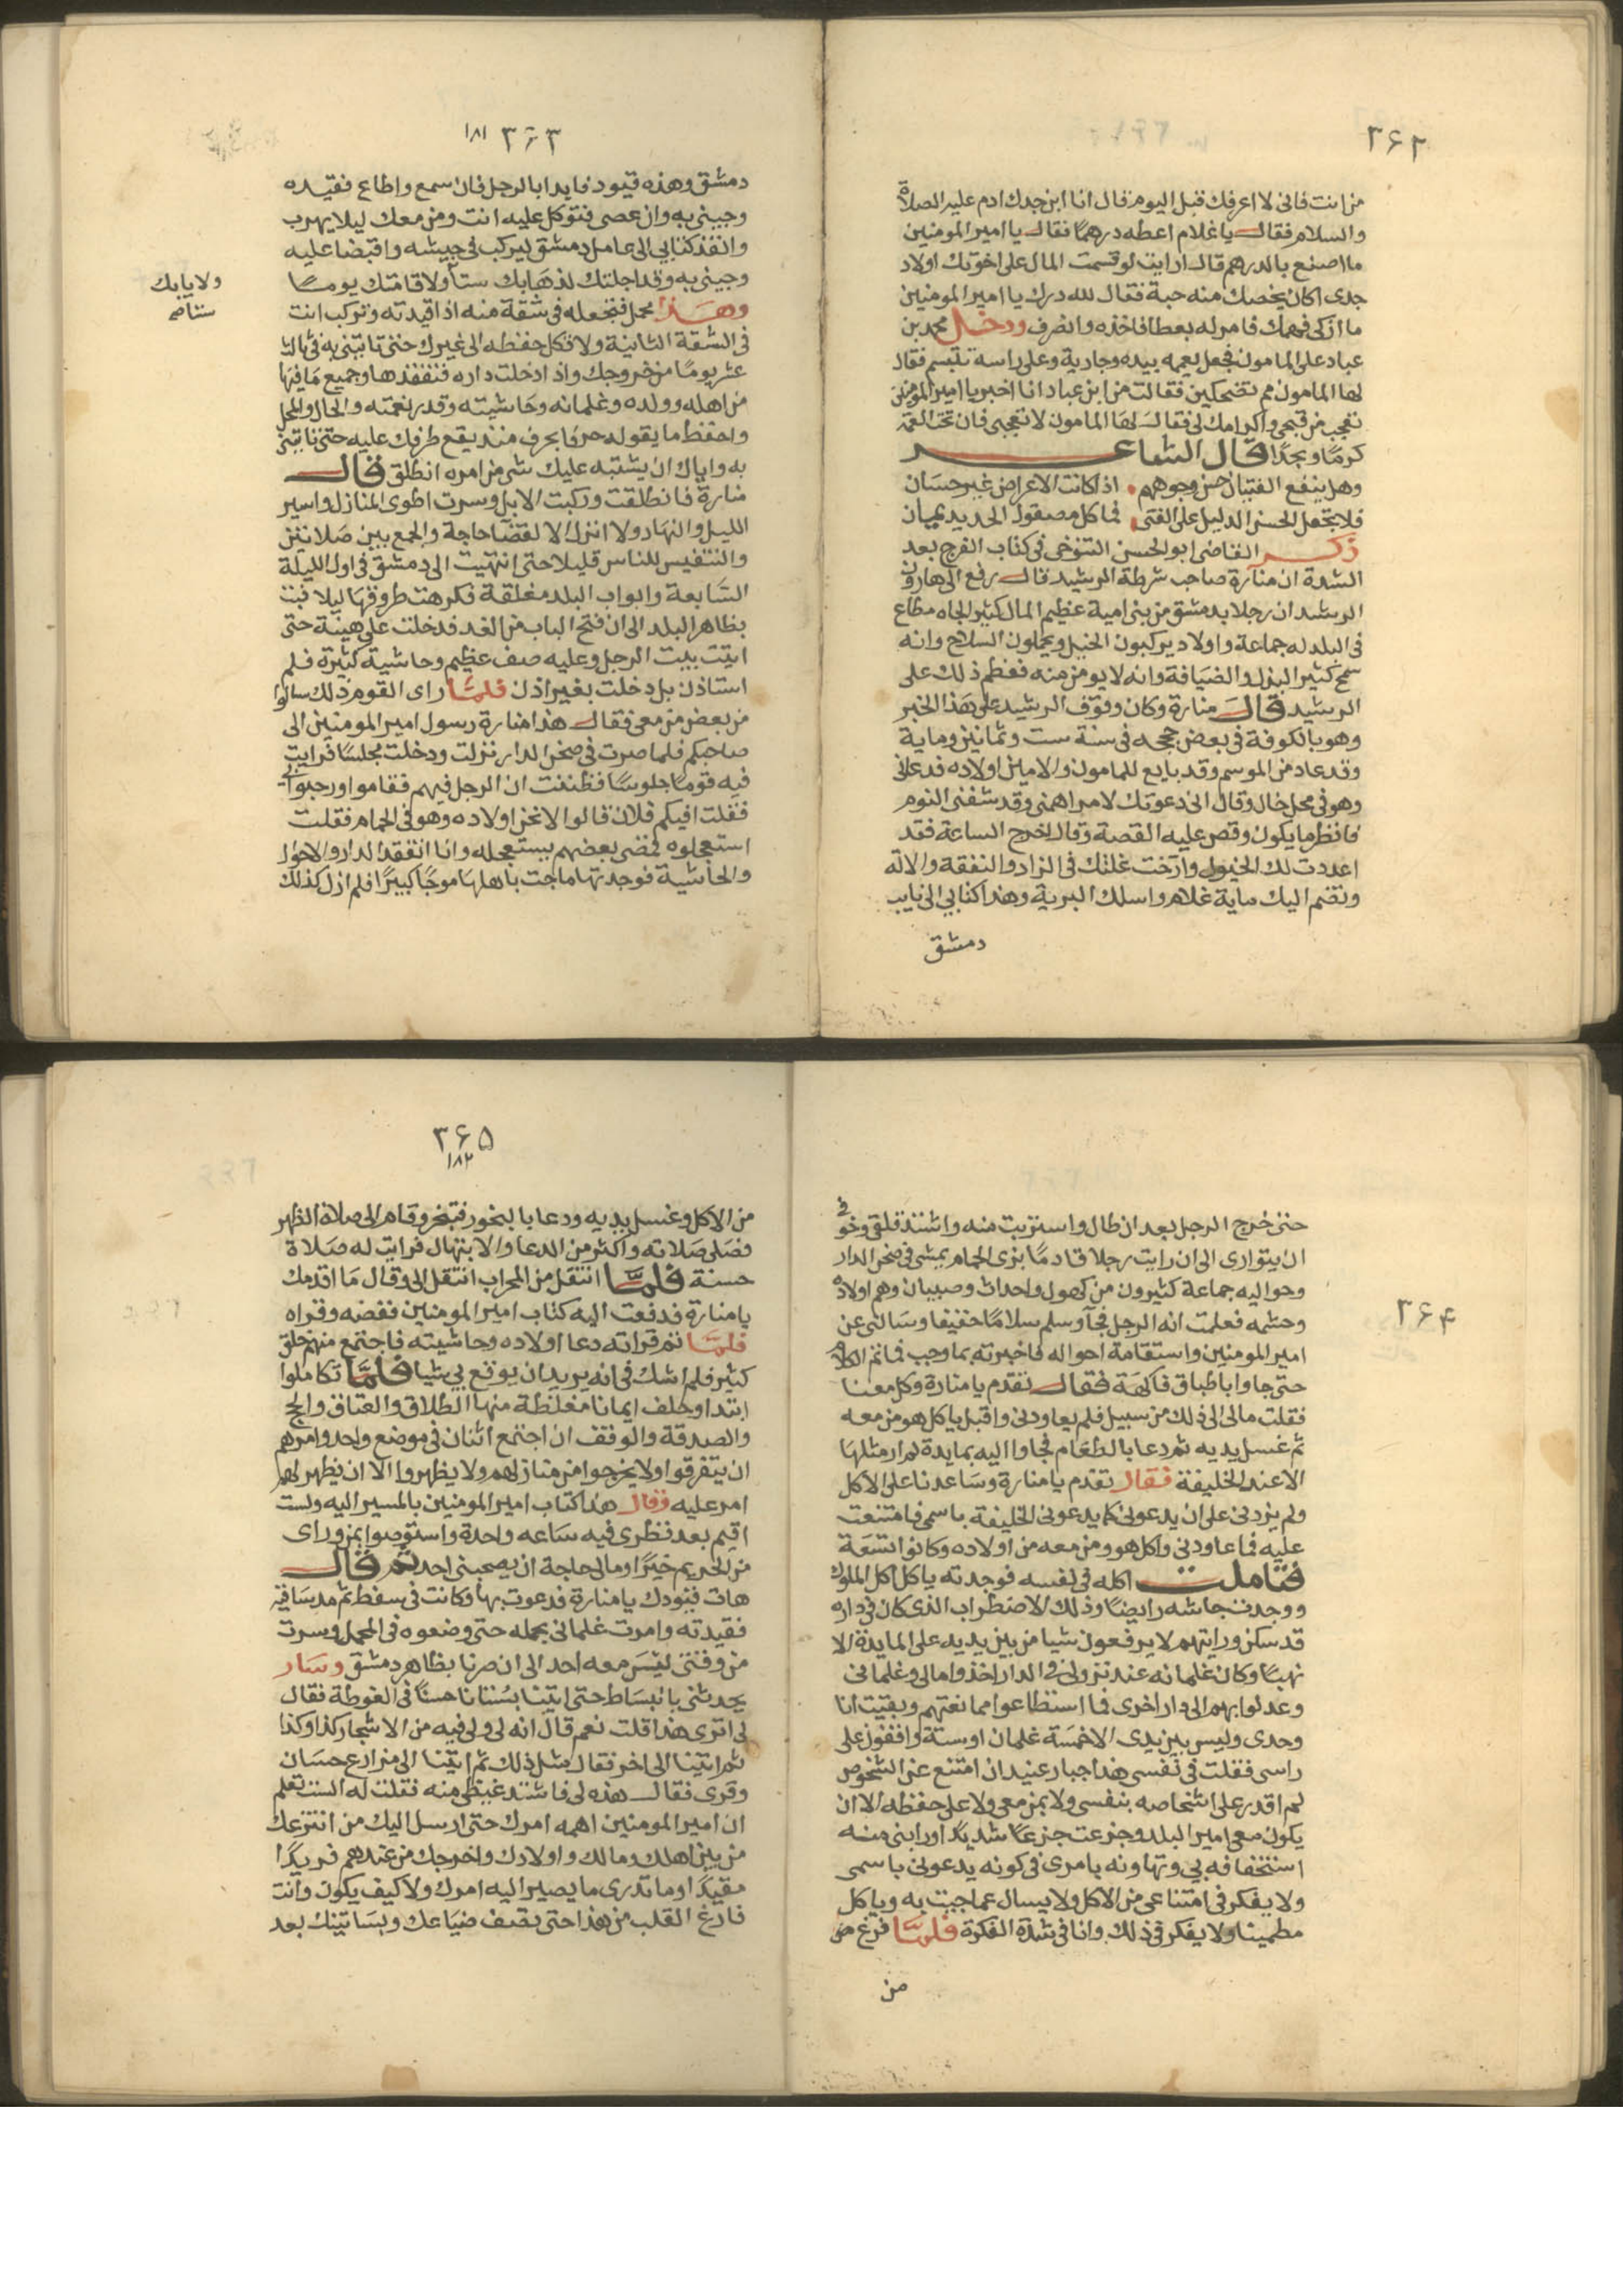 ٣۶٢
من انت فانى لا اعرفك قبل اليوم قال انا ابن جدك ادم عليه الصلاة
والسلام فقال يا غلام اعطه درهمًا فقال يا امير المومنين
ما اصنع بالدرهم قال ارايت لو قسمت المال على اخوتك اولاد
جدى اكان يخصك منه حبة فقال لله درك يا امير المومنين
ما ازكى فهمك فامر له بعطا فاخذه وانصرف ودخل محمد بن
عباد على المامون فجعل يعممه بيده وجارية على راسه تتبسم فقال
لها المامون مم تضحكين فقالت من ابن عباد انا اخبر يا امير المومنين
تعجب من قبحى واكرامك لى فقال لها المامون لا تعجبى فان تحت العمة
كرمًا ومجدًا قال الشاعر
وهل ينفع الفتيان حسن وجوههم اذا كانت الاعراض غير حسان
فلا تجعل الحسن الدليل على الفتى فما كل مصقول الحديد يمان
ذكر القاضى ابو الحسن التنوخى فى كتاب الفرج بعد
الشدة ان منارة صاحب شرطة الرشيد قال رفع الى هارون
الرشيد ان رجلا بدمشق من بنى امية عظيم المال كثير الجاه مطاع
فى البلد له جماعة واولاد يركبون الخيل ويحملون السلاح وانه
سمح كثير البذل والضيافة وانه لا يومن منه فعظم ذلك على
الرشيد قال منارة وكان وقوف الرشيد على هذا الخبر
وهو بالكوفة فى بعض حججه فى سنة ست وثمانين وماية
وقد عاد من الموسم وقد بايع للمامون والامين اولاده فدعانى
وهو فى محل خال وقال انى دعوتك لامر اهمنى وقد شفنى النوم
فانظر ما يكون وقص عليه القصة وقال اخرج الساعة فقد
اعددت لك الخيول وازحت علتك فى الزاد والنفقة والالة
ونضم اليك ماية غلام واسلك البرية وهذا كتابى الى نايب
دمشق
٣۶٣ ١٨١
دمشق وهذه قيود فابدا بالرجل فان سمع واطاع فقيده
وجينى به وان عصى فتوكل عليه انت ومن معك ليلا يهرب
وانفذ كتابى الى عامل دمشق ليركب فى جيشه واقبضا عليه
وجينى به وقد اجلتك لذهابك ستا ولاقامتك يومًا
ولايابك
ستا صح
وهذا محمل فتجعله فى شقة منه اذا قيدته وتركب انت
فى الشقة الثانية ولا تكل حفظه الى غيرك حتى تاتينى به فى ثالث
عشر يومًا من خروجك واذا دخلت داره فتفقدها وجميع ما فيها
من اهله وولده وغلمانه وحاشيته وقدر نعمته والحال والمحل
واحفظ ما يقوله حرفا بحرف منذ يقع طرفك عليه حتى تاتينى
به واياك ان يشتبه عليك شى من امره انطلق قال
منارة فانطلقت وركبت الابل وسرت اطوى المنازل واسير
الليل والنهار ولا انزل الا لقضا حاجة والجمع بين صلاتين
والتنفيس للناس قليلا حتى انتهيت الى دمشق فى اول الليلة
السابعة وابواب البلد مغلقة فكرهت طروقها ليلا فبت
بظاهر البلد الى ان فتح الباب من الغد فدخلت على هيئة حتى
اتيت بيت الرجل وعليه صف عظيم وحاشية كثيرة فلم
استاذن بل دخلت بغير اذن فلما راى القوم ذلك سالوا
من بعض من معى فقال هذا منارة رسول امير المومنين الى
صاحبكم فلما صرت فى صحن الدار نزلت ودخلت مجلسًا فرايت
فيه قومًا جلوسًا فظننت ان الرجل فيهم فقاموا ورحبوا بى
فقلت افيكم فلان قالوا لا نحن اولاده وهو فى الحمام فقلت
استعجلوه فمضى بعضهم يستعجله وانا اتفقد الدار والاحوال
والحاشية فوجدتها ماجت باهلها موجًا كبيرًا فلم ازل كذلك
٣۶۴
حتى خرج الرجل بعد ان طال واستربت منه واشتد قلقى وخوفى
ان يتوارى الى ان رايت رجلا قادمًا بزى الحمام يمشى فى صحن الدار
وحواليه جماعة كثيرون من كهول واحداث وصبيان وهم اولاده
وحشمه فعلمت انه الرجل فجآ وسلم سلامًا خفيفا وسالنى عن
امير المومنين واستقامة احواله فاخبرته بما وجب فما تم الكلام
حتى جاوا باطباق فاكهة فقال تقدم يا منارة وكل معنا
فقلت مالى الى ذلك من سبيل فلم يعاودنى واقبل ياكل هو ومن معه
ثم غسل يديه ثم دعا بالطعام فجاوا اليه بمايدة لم ار مثلها
الا عند الخليفة فقال تقدم يا منارة وساعدنا على الاكل
ولم يزدنى على ان يدعونى كما يدعونى الخليفة باسمى فامتنعت
عليه فما عاودنى واكل هو ومن معه من اولاده وكانوا تسعة
فتاملت اكله فى نفسه فوجدته ياكل اكل الملوك
ووجدت جاشه رابضًا وذلك الاضطراب الذى كان فى داره
قد سكن ورايتهم لا يرفعون شيا من بين يديه على المايدة الا
نهبًا وكان غلمانه عند نزولى فى الدار اخذوا مالى وغلمانى
وعدلوا بهم الى دار اخرى فما استطاعوا ممانعتهم وبقيت انا
وحدى وليس بين يدى الا خمسة غلمان او ستة وافقون على
راسى فقلت فى نفسى هذا جبار عنيد ان امتنع عن الشخوص
لم اقدر على اشخاصه بنفسى ولا بمن معى ولا على حفظه الا ان
يكون معى امير البلد وجزعت جزعًا شديدًا ورابنى منه
استخفافه بى وتهاونه بامرى فى كونه يدعونى باسمى
ولا يفكر فى امتناعى من الاكل ولا يسال عما جيت به وياكل
مطمينا ولا يفكر فى ذلك وانا فى شدة الفكرة فلما فرغ من
من
٣۶۵
١٨٢
من الاكل وغسل يديه ودعا بالبخور فتبخر وقام الى صلاة الظهر
فصلى صلاته واكثر من الدعا والابتهال فرايت له صلاة
حسنة فلما انتقل من المحراب انتقل الى وقال ما اقدمك
يا منارة فدفعت اليه كتاب امير المومنين ففضه وقراه
فلما تم قراته دعا اولاده وحاشيته فاجتمع منهم خلق
كثير فلم اشك فى انه يريد ان يوقع بى شيا فلما تكاملوا
ابتدا وحلف ايمانا مغلظة منها الطلاق والعتاق والحج
والصدقة والوقف ان اجتمع اثنان فى موضع واحد وامرهم
ان يتفرقوا ولا يخرجوا من منازلهم ولا يظهروا الا ان يظهر لهم
امر عليه وقال هذا كتاب امير المومنين بالمسير اليه ولست
اقيم بعد نظرى فيه ساعه واحدة واستوصوا بمن وراى
من الحريم خيرًا وما لى حاجة ان يصحبنى احد ثم قال
هات قيودك يا منارة فدعوت بها وكانت فى سفط ثم مد ساقيه
فقيدته وامرت غلمانى بحمله حتى وضعوه فى المحمل وسرت
من وقتى ليس معه احد الى ان صرنا بظاهر دمشق وسار
يحدثنى بانبساط حتى اتينا بستانا حسنًا فى الغوطة فقال
لى اترى هذا قلت نعم قال انه لى ولى فيه من الاشجار كذا وكذا
ثم اتينا الى اخر فقال مثل ذلك ثم اتينا الى مزارع حسان
وقرى فقال هذه لى فاشتد غيظى منه فقلت له الست تعلم
ان امير المومنين اهمه امرك حتى ارسل اليك من انتزعك
من بين اهلك ومالك واولادك واخرجك من عندهم فريدًا
مقيدًا وما تدرى ما يصير اليه امرك ولا كيف يكون وانت
فارغ القلب من هذا حتى تصف ضياعك وبساتينك بعد